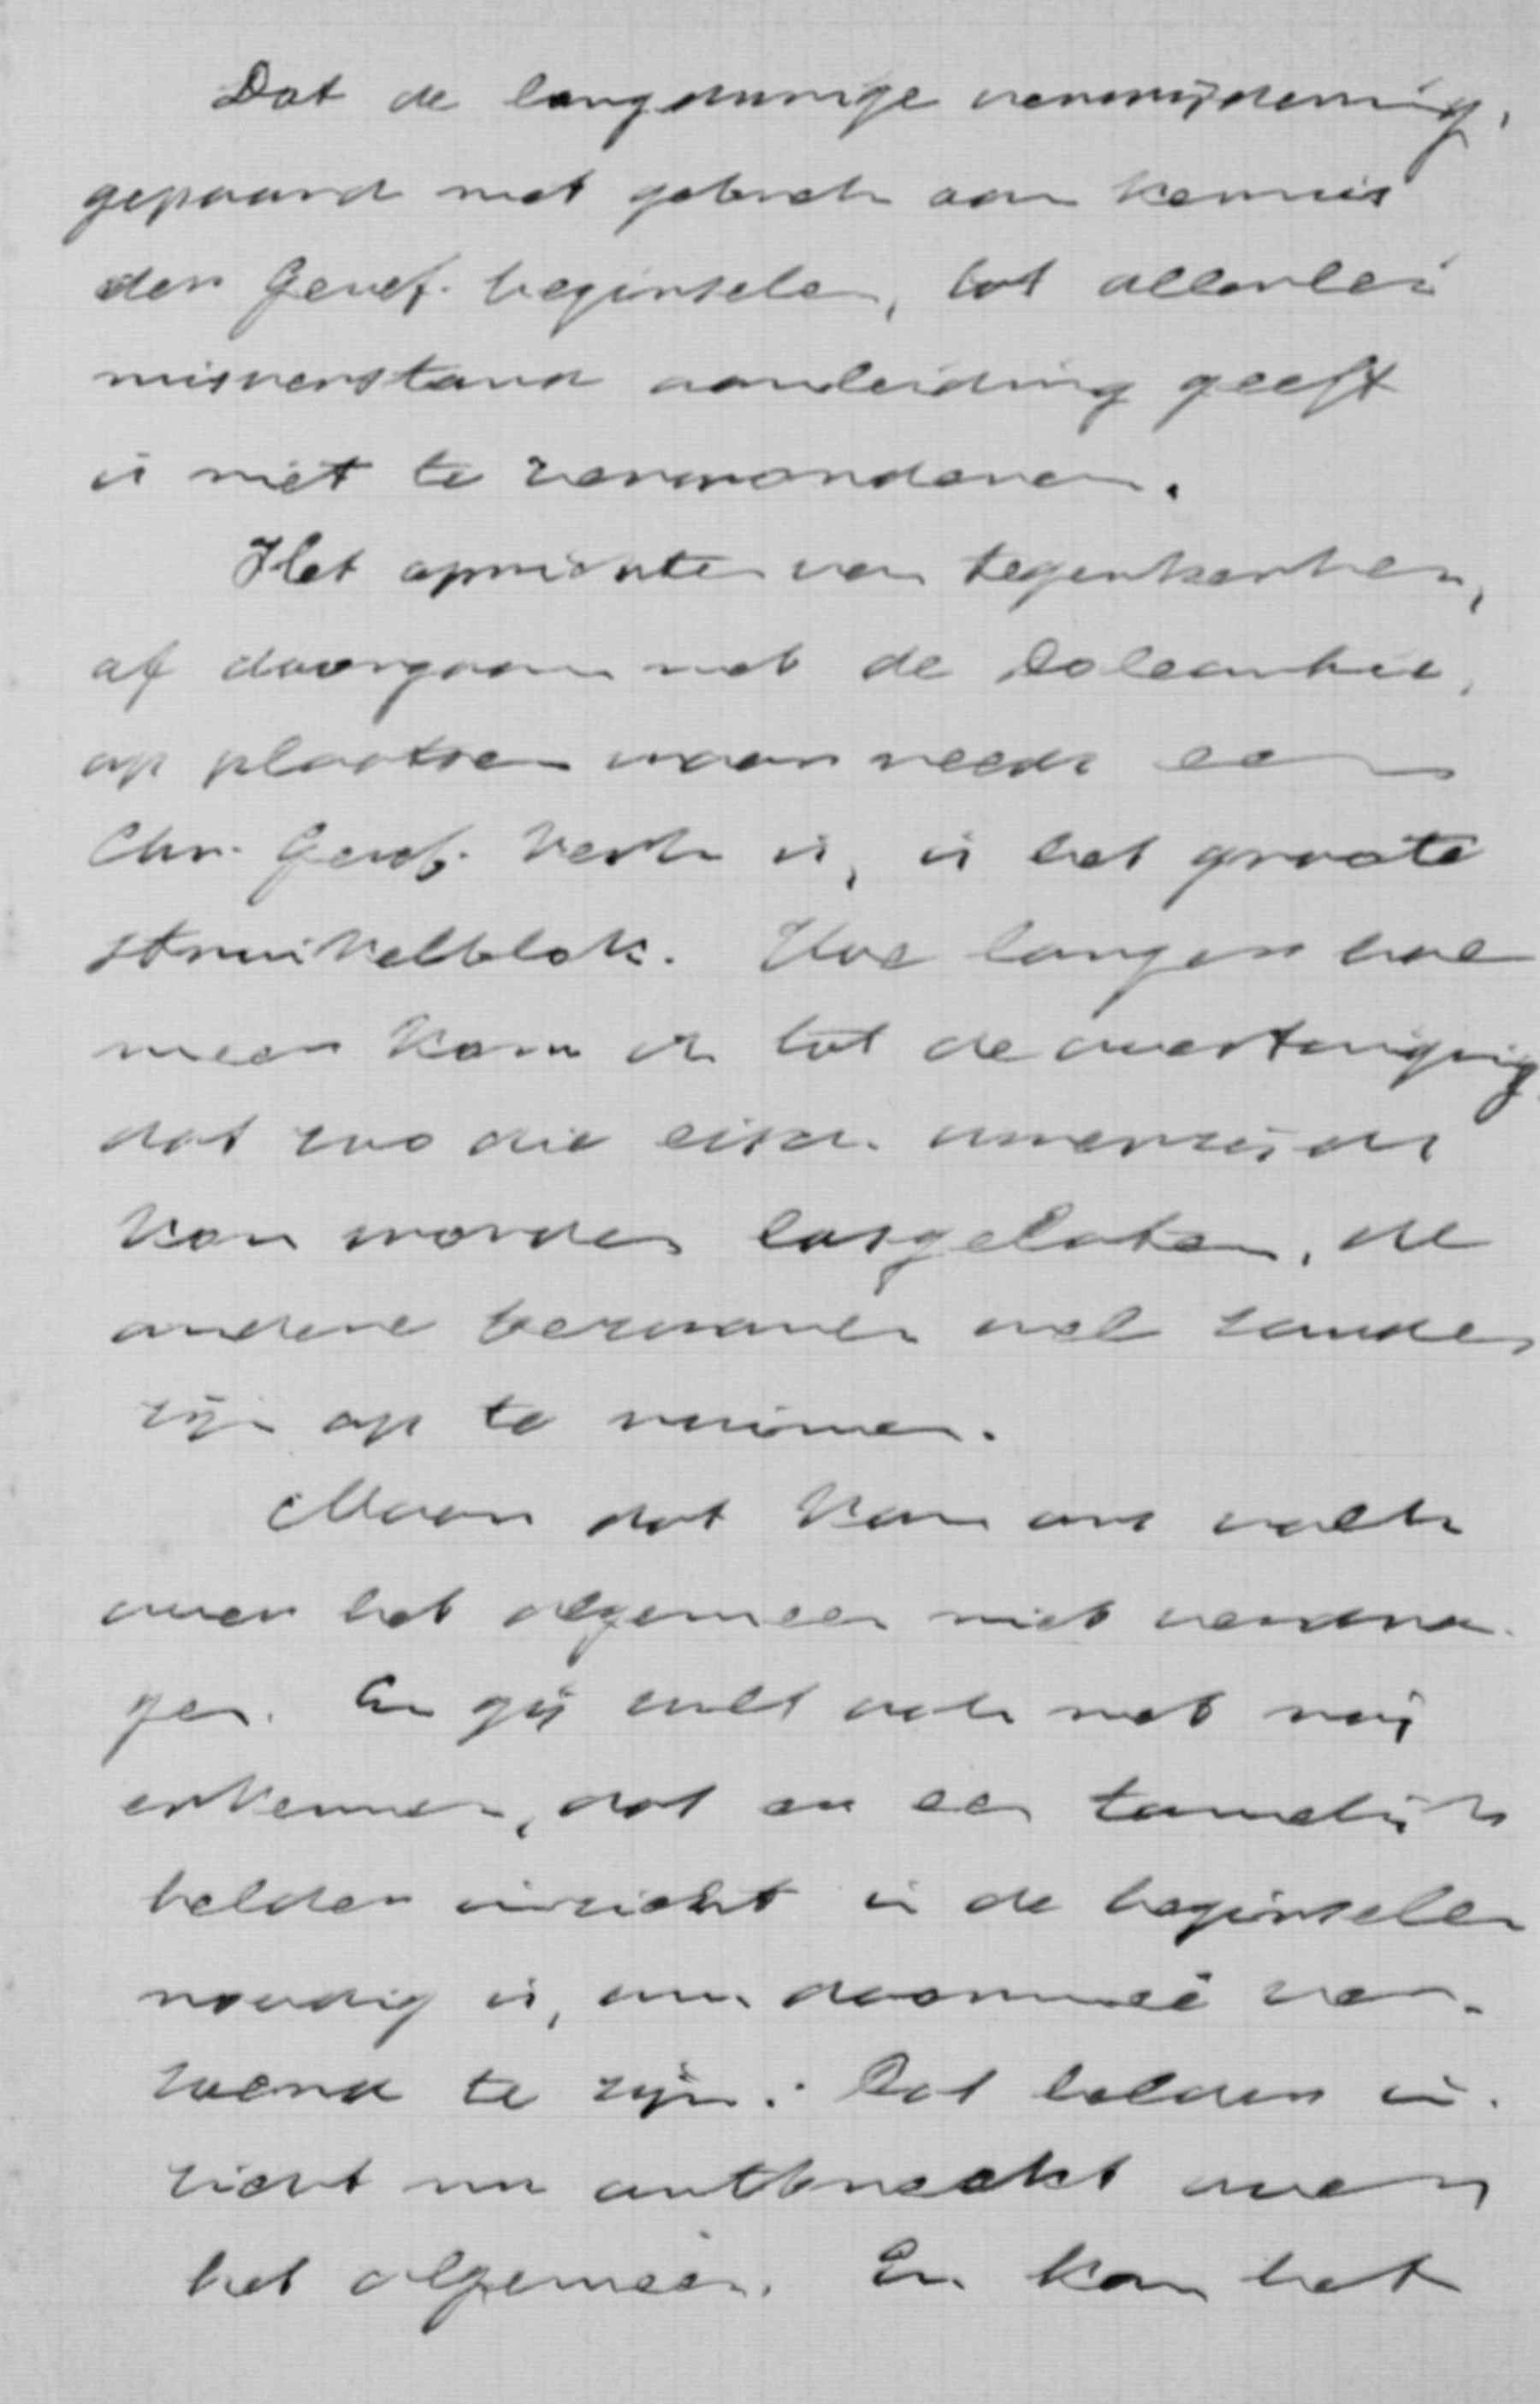 Dat de langdurige verwijdering,
gepaard met gebrek aan kennis
der Geref. beginselen, tot allerlei
misverstand aanleiding geeft
is niet te verwonderen.
Het oprichten van tegenkerken,
of doorgaan met de Doleantie,
op plaatsen waar reeds een
Chr. Geref. Kerk is, is het groote
struikelblok. Hoe langer hoe
meer kom ik tot de overtuiging
dat zoo die eisch onverzijds
kon worden losgelaten, de
andere bezwaren wel zouden
zijn op te ruimen.
Maar dat kan ons volk
over het algemeen niet verdra-
gen. En gij zult ook met mij
erkennen, dat er een tamelijk
helder inzicht in de beginselen
noodig is, om daarmeê ver-
zoend te zijn. Dat helder in-
zicht nu ontbreekt over
het algemeen. En kan het